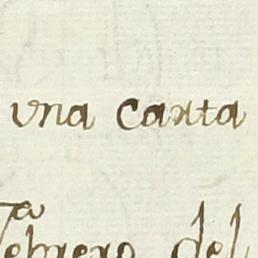 una carta
Febrero del